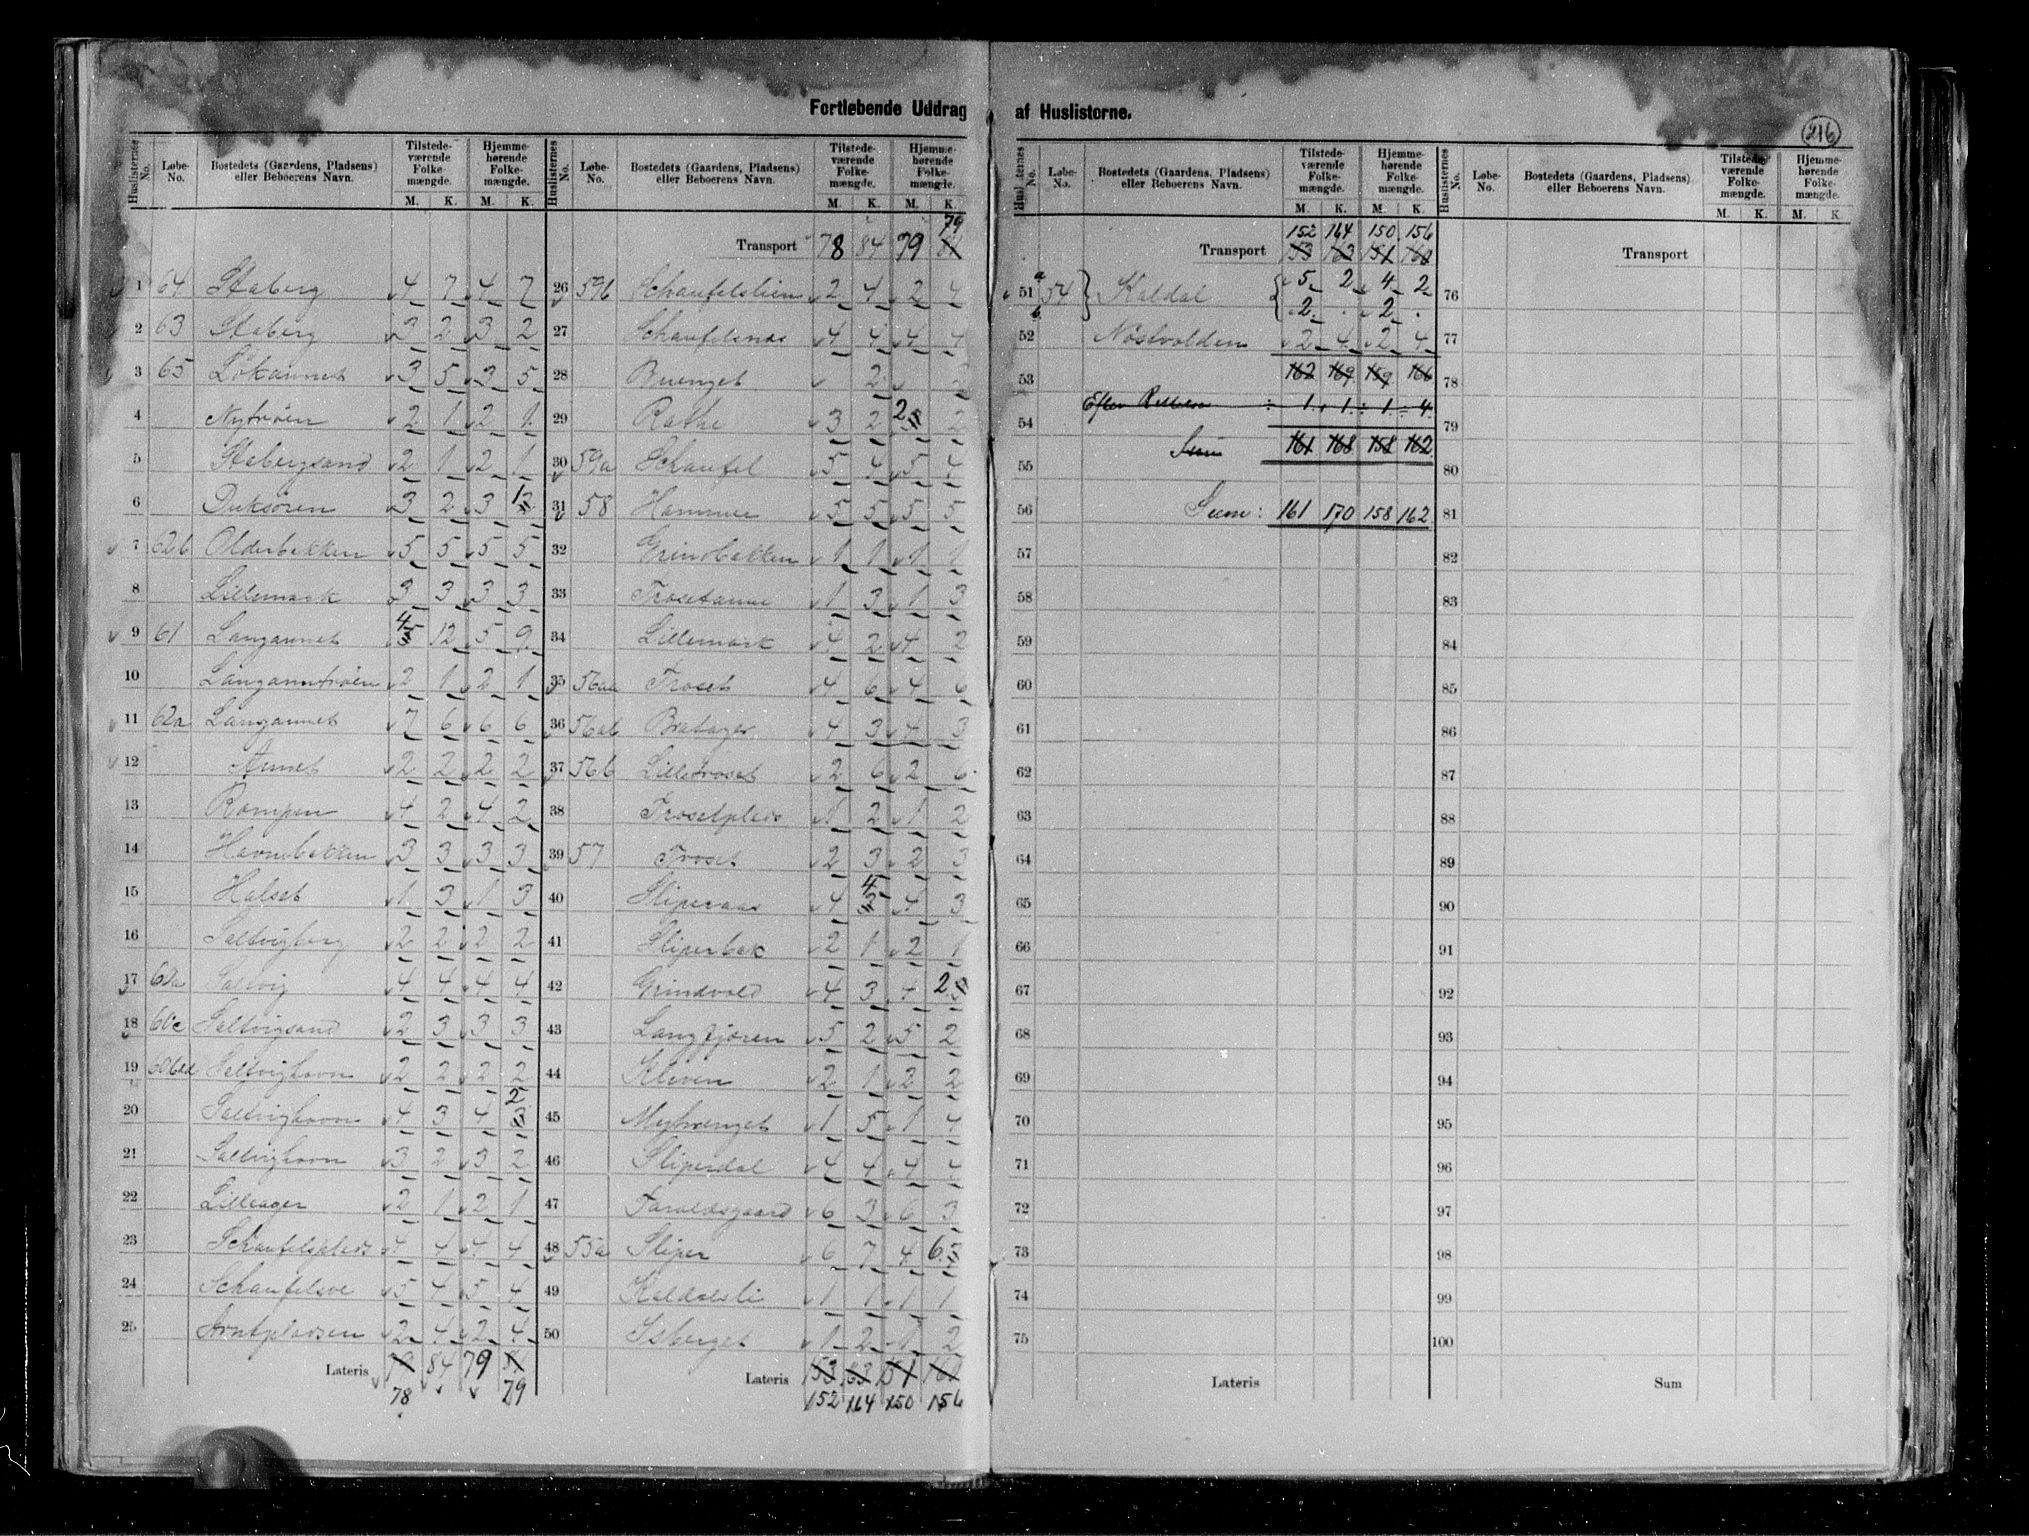 Fortløbende Uddrag af Huslisterne.
216
Huslisternes No. Løbe-No. Bostedets (Gaardens, Pladsens) eller Beboerens Navn. Tilstedeværende Folkemængde. Hjemmehørende Folkemængde.
M. K. M. K.
1 64 Staberg 4 7 4 7
2 63 Staberg 3 2 3 2
3 65 Lökaunet 3 5 3 5
4 Nytrøen 2 1 2 1
5 Stabergsand 2 1 2 1
6 Duksören 3 2 3 1
7 62b Olderbakken 5 5 5 5
8 Lillemark 3 3 3 3
9 61 Langaunet 4 12 5 9
10 Langaunetrøen 2 1 2 1
11 62a Langaunet 7 6 6 6
12 Aunet 2 2 2 2
13 Rompen 4 2 4 2
14 Havnebakken 3 3 3 3
15 Halset 1 3 1 3
16 Saltvigberg 2 2 2 2
17 60a Saltvig 4 4 4 4
18 60c Saltvigsand 2 3 3 3
19 60bd Saltvighavn 2 2 2 2
20 Saltvighavn 4 3 4 2
21 Saltvighavn 3 2 3 2
22 Lilleager 2 1 2 1
23 Schaufelsplads 4 4 4 4
24 Schaufelsve 5 4 5 4
25 Arntpladsen 2 4 2 4
Lateris 79 84 79 81
78 79
Huslisternes No. Løbe-No. Bostedets (Gaardens, Pladsens) eller Beboerens Navn. Tilstedeværende Folkemængde. Hjemmehørende Folkemængde.
M. K. M. K.
79
Transport 78 84 79 81
26 59b Schaufelslien 2 4 2 4
27 Schaufelsnes 4 4 4 4
28 Buenget 2 2
29 Rathe 3 2 2 2
30 59a Schaufel 5 4 5 4
31 58 Hammer 5 5 5 5
32 Grindbakken 1 1 1 1
33 Trosetaune 1 3 1 3
34 Lillemark 4 2 4 2
35 56aa Troset 4 6 4 6
36 56ab Bratager 4 3 4 3
37 56b Lilletroset 2 6 2 6
38 Trosetplads 1 2 1 2
39 57 Troset 2 3 2 3
40 Sliperaas 4 4 4 3
41 Sliperbak 2 1 2 1
42 Grindvold 4 3 4 2
43 Langfjæren 5 2 5 2
44 Kleven 2 1 2 2
45 Myhrenget 1 5 1 4
46 Sliperdal 4 4 4 4
47 Faraldsgaard 6 3 6 3
48 55a Sliper 6 7 4 6
49 Kaldalsli 1 1 1 1
50 Isberget 1 2 1 2
Lateris 153 163 151 161
152 164 150 156
Huslisternes No. Løbe-No. Bostedets (Gaardens, Pladsens) eller Beboerens Navn. Tilstedeværende Folkemængde. Hjemmehørende Folkemængde.
M. K. M. K.
152 164 150 156
Transport 153 163 151 160
51 a 54 Kaldal 5 2 4 2
b 2 . 2 .
52 Nöstvolden 2 4 2 4
53 162 169 159 166
Efter ÷ 1 + 1 ÷ 1 ÷ 4
54
Sum 161 168 158 162
55
56 Sum: 161 170 158 162
57
58
59
60
61
62
63
64
65
66
67
68
69
70
71
72
73
74
75
Lateris
Huslisternes No. Løbe-No. Bostedets (Gaardens, Pladsens) eller Beboerens Navn. Tilstedeværende Folkemængde. Hjemmehørende Folkemængde.
M. K. M. K
Transport
76
77
78
79
80
81
82
83
84
85
86
87
88
89
90
91
92
93
94
95
96
97
98
99
100
Sum